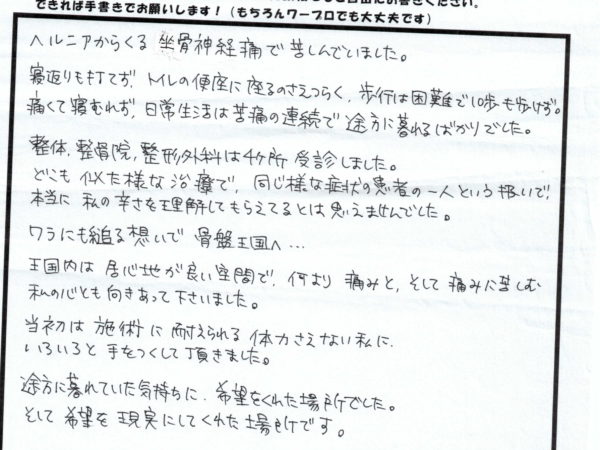 できれば手書きでお願いします！（もちろんワープロでも大丈夫です）
ヘルニアからくる 坐骨神経痛で苦しんでいました。
寝返りも打てず、トイレの便座に座るのさえつらく、歩行は困難で10歩も歩けず。
痛くて寝むれず、日常生活は苦痛の連続で 途方に暮れるばかりでした。
整体、整骨院、整形外科は4ヶ所 受診しました。
どこも 似た様な治療で、同じ様な症状の患者の一人という扱いで、
本当に 私の辛さを理解してもらえてるとは思えませんでした。
ワラにも縋る想いで 骨盤王国へ…
王国内は 居心地が良い空間で、何より 痛みと、そして 痛みに苦しむ
私の心とも向きあって下さいました。
当初は 施術に 耐えられる 体力さえない私に、
いろいろと 手をつくして頂きました。
途方に暮れていた気持ちに、希望をくれた場所でした。
そして 希望を 現実にしてくれた場所です。